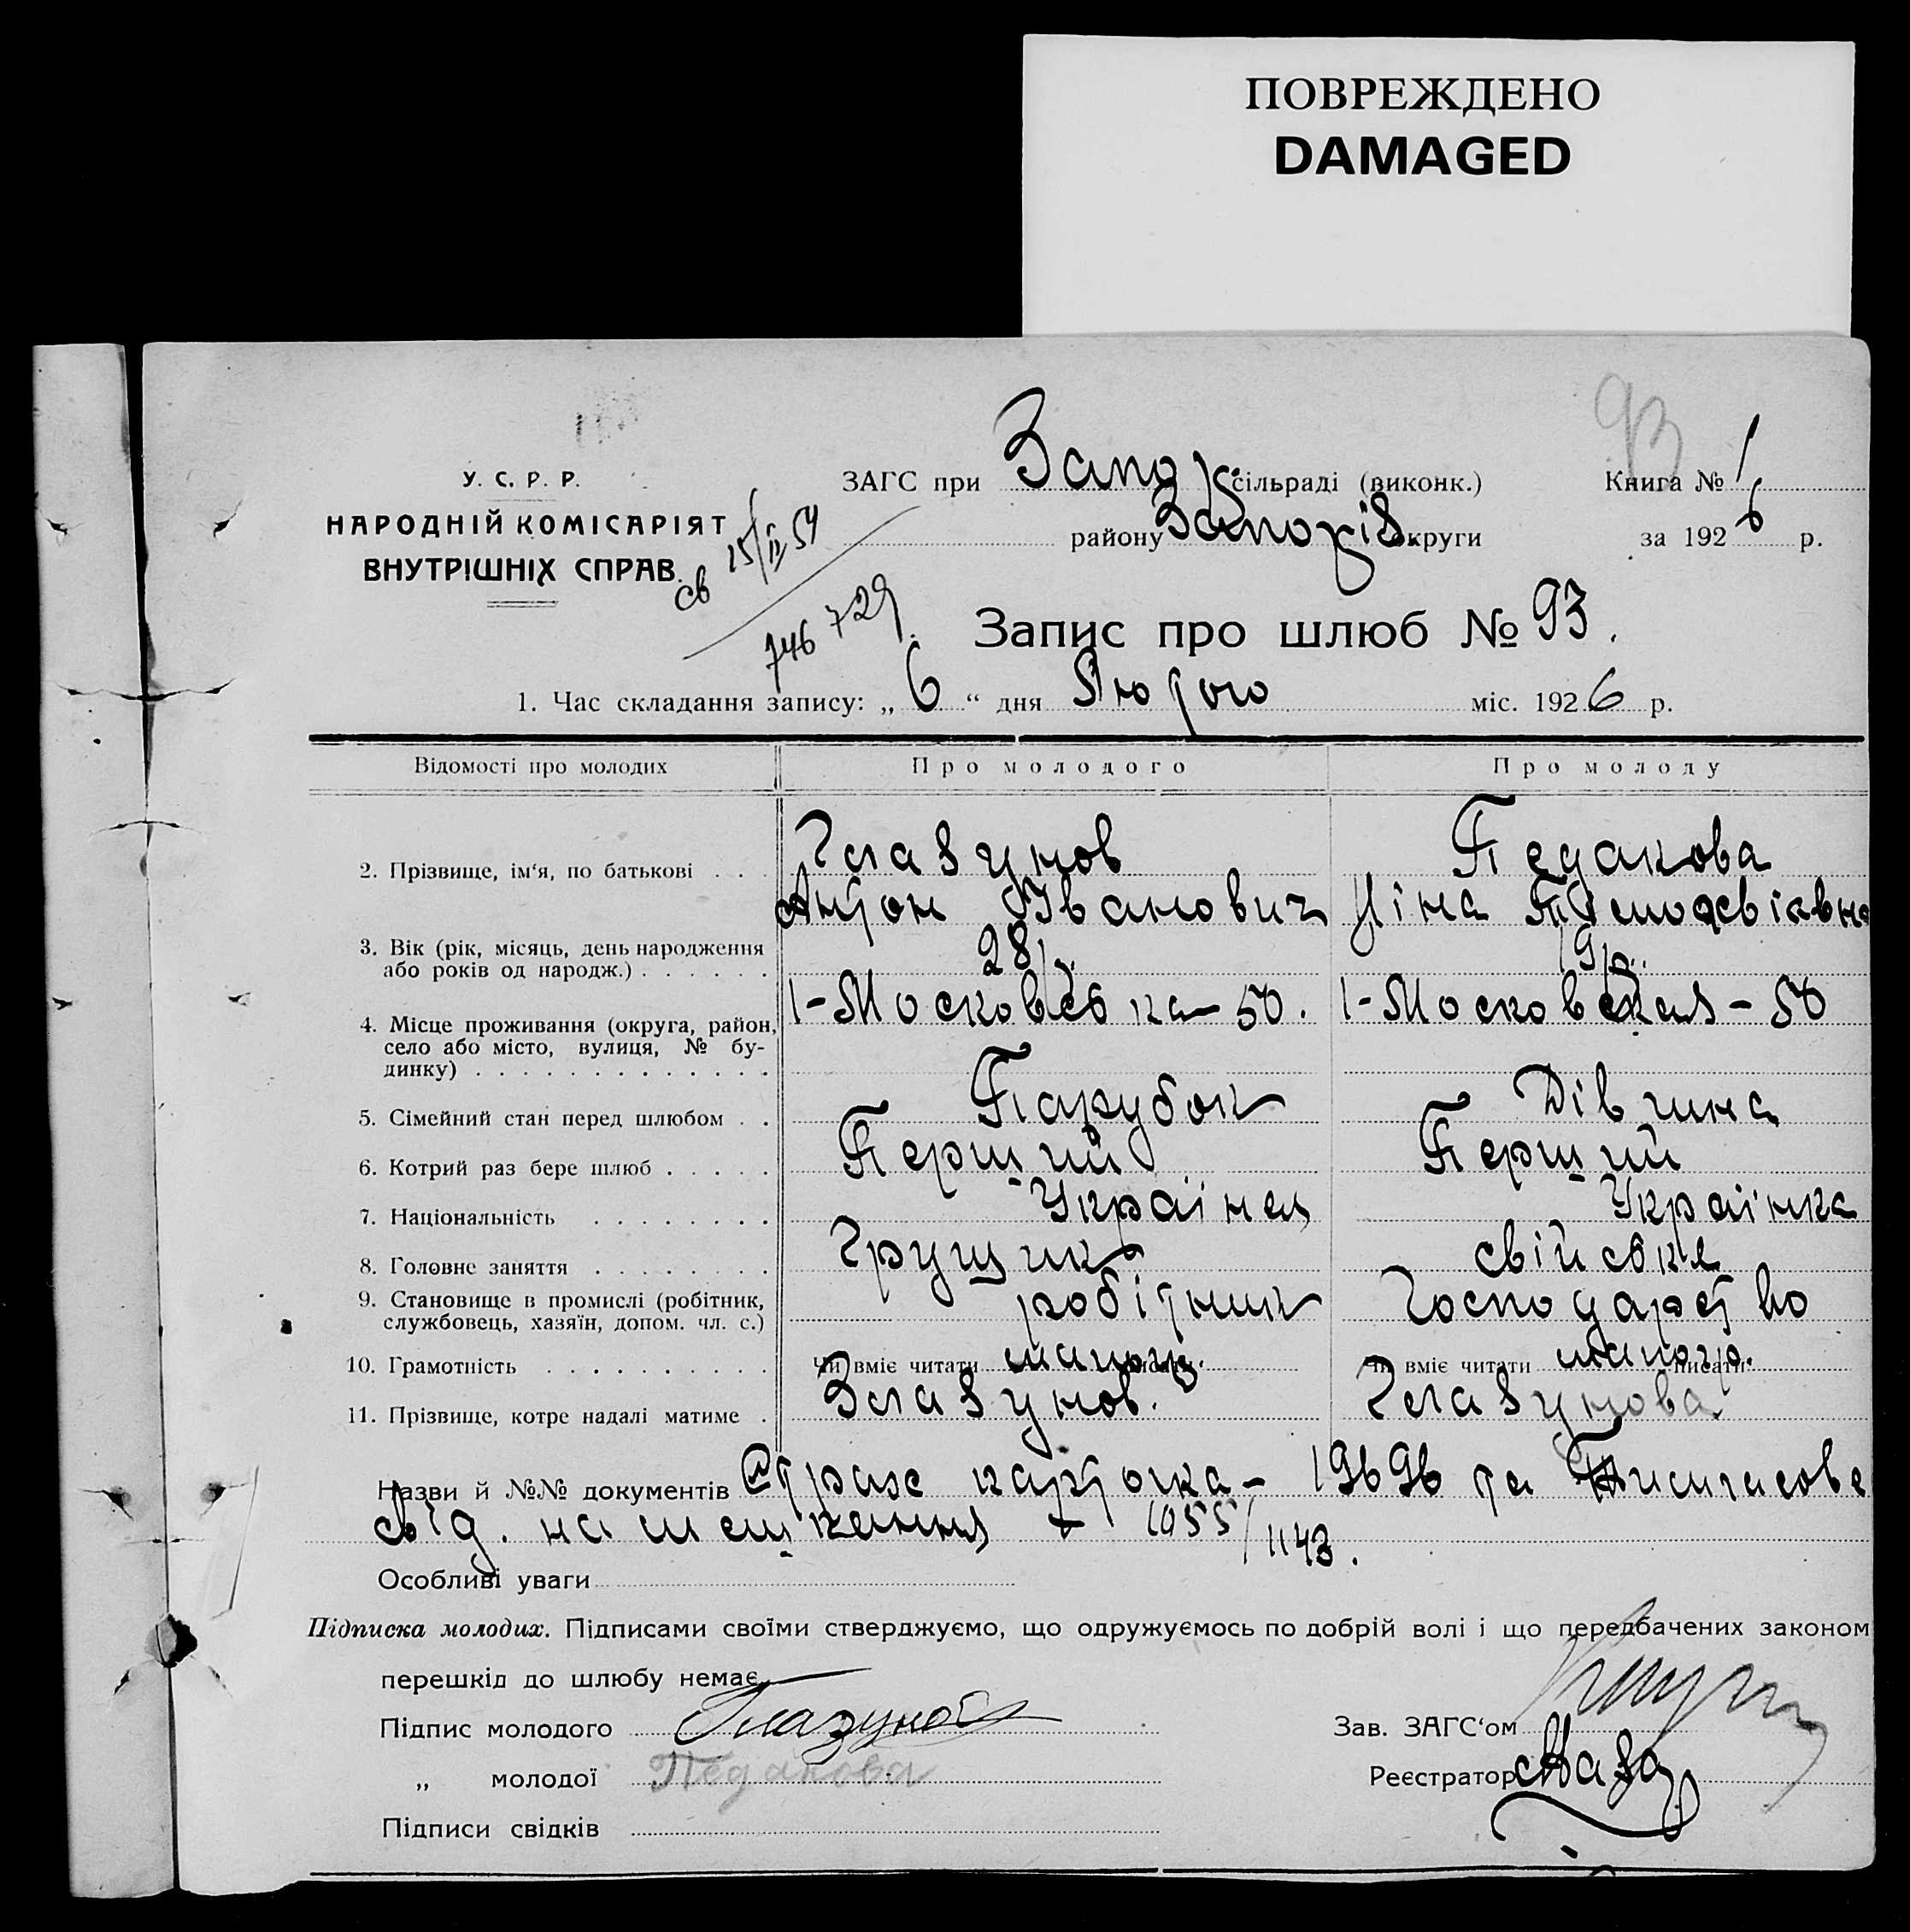 ПОВРЕЖДЕНО
DAMAGED
93
У. С. Р. Р.
НАРОДНІЙ КОМІСАРІЯТ
ВНУТРІШНІХ СПРАВ.
ЗАГС при Запор сільраді (виконк.)
Книга № 1
району Запоріз. округи
за 1926 р.
св 15/II 54
746729.
Запис про шлюб № 93.
1. Час складання запису: „ 6 “ дня Лютого міс. 1926 р.
Відомості про молодих
Про молодого
Про молоду
2. Прізвище, ім‘я, по батькові . . .
Глазунов
Антон Іванович
Педакова
Ніна
3. Вік (рік, місяць, день народження
або років од народж.) . . . . . .
28 р.
19 р.
4. Місце проживання (округа, район,
село або місто, вулиця, № бу-
динку) . . . . . . . . . . . . .
1-Московська-50.
1-Московская-50
5. Сімейний стан перед шлюбом . .
Парубок
Дівчина
6. Котрий раз бере шлюб . . . . .
Перший
Перший
7. Національність . . . . . . . .
Українец
Українка
8. Головне заняття . . . . . . . .
Грущик
свійське
9. Становище в промислі (робітник,
службовець, хазяїн, допом. чл. с.)
робітник
Господарство
10. Грамотність . . . . . . . . . .
Чи вміє читати малопис. писати
Чи вміє читати малогр. писати
11. Прізвище, котре надалі матиме .
Глазунов.
Глазунова
Назви й №№ документів Страх карточка - 19696 та Тимчасове
від. на мешкання 1055/1143.
Особливі уваги
Підписка молодих. Підписами своїми стверджуємо, що одружуємось по добрій волі і що передбачених законом
перешкід до шлюбу немає.
Підпис молодого Глазунов
Зав. ЗАГС‘ом
„ молодої Педакова
Реєстратор
Підписи свідків